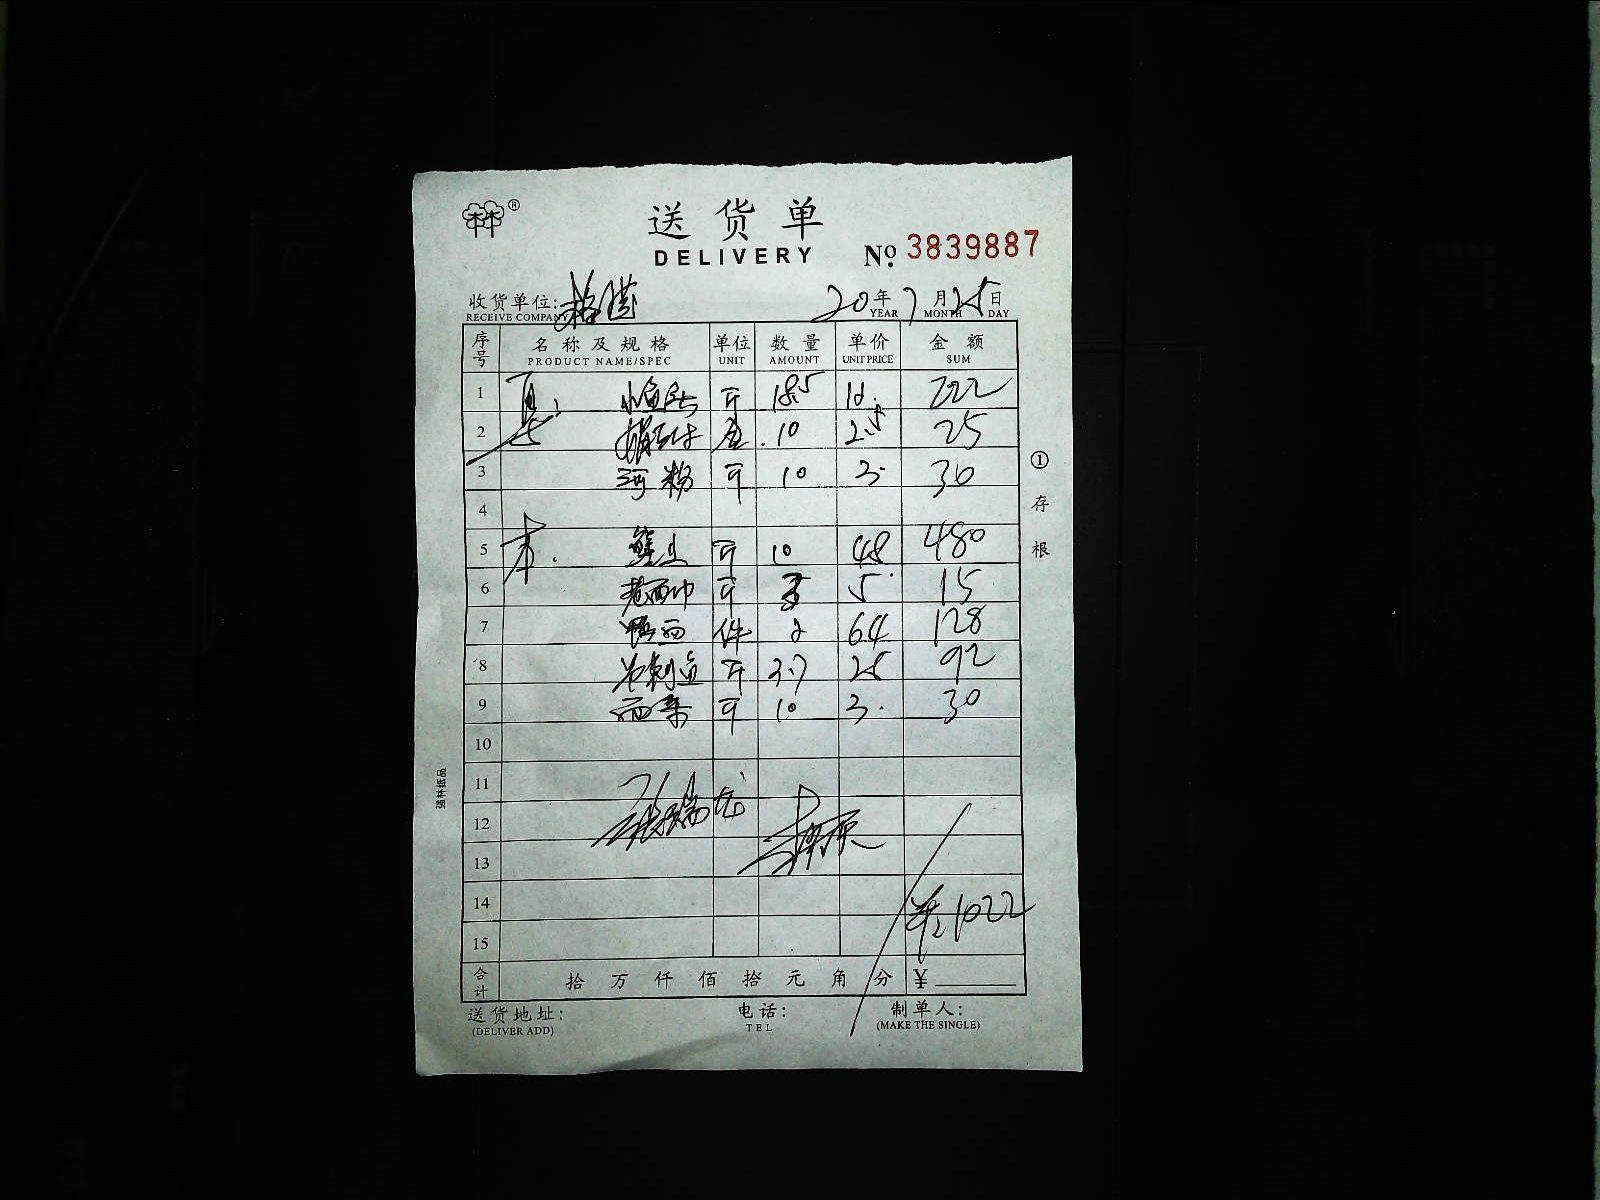 ®
送货单
DELIVERY
№ 3839887
收货单位:
RECEIVE COMPANY
20年7月25日
YEAR MONTH DAY
序号 名称及规格 单位 数量 单价 金额
PRODUCT NAME/SPEC UNIT AMOUNT UNIT PRICE SUM
1 小鱼 斤 18.5 12. 222
2 盒 10 2.5 25
3 河粉 斤 10 3. 30
4
5 斤 10 48 480
6 斤 3 5 15
7 件 2 64 128
8 斤 3.7 25 92
9 斤 10 3. 30
10
11
12
13
14 1022
15
合计 拾 万 仟 佰 拾 元 角 分 ¥
送货地址: 电话: 制单人:
(DELIVER ADD) TEL (MAKE THE SINGLE)
①存根
强林纸品